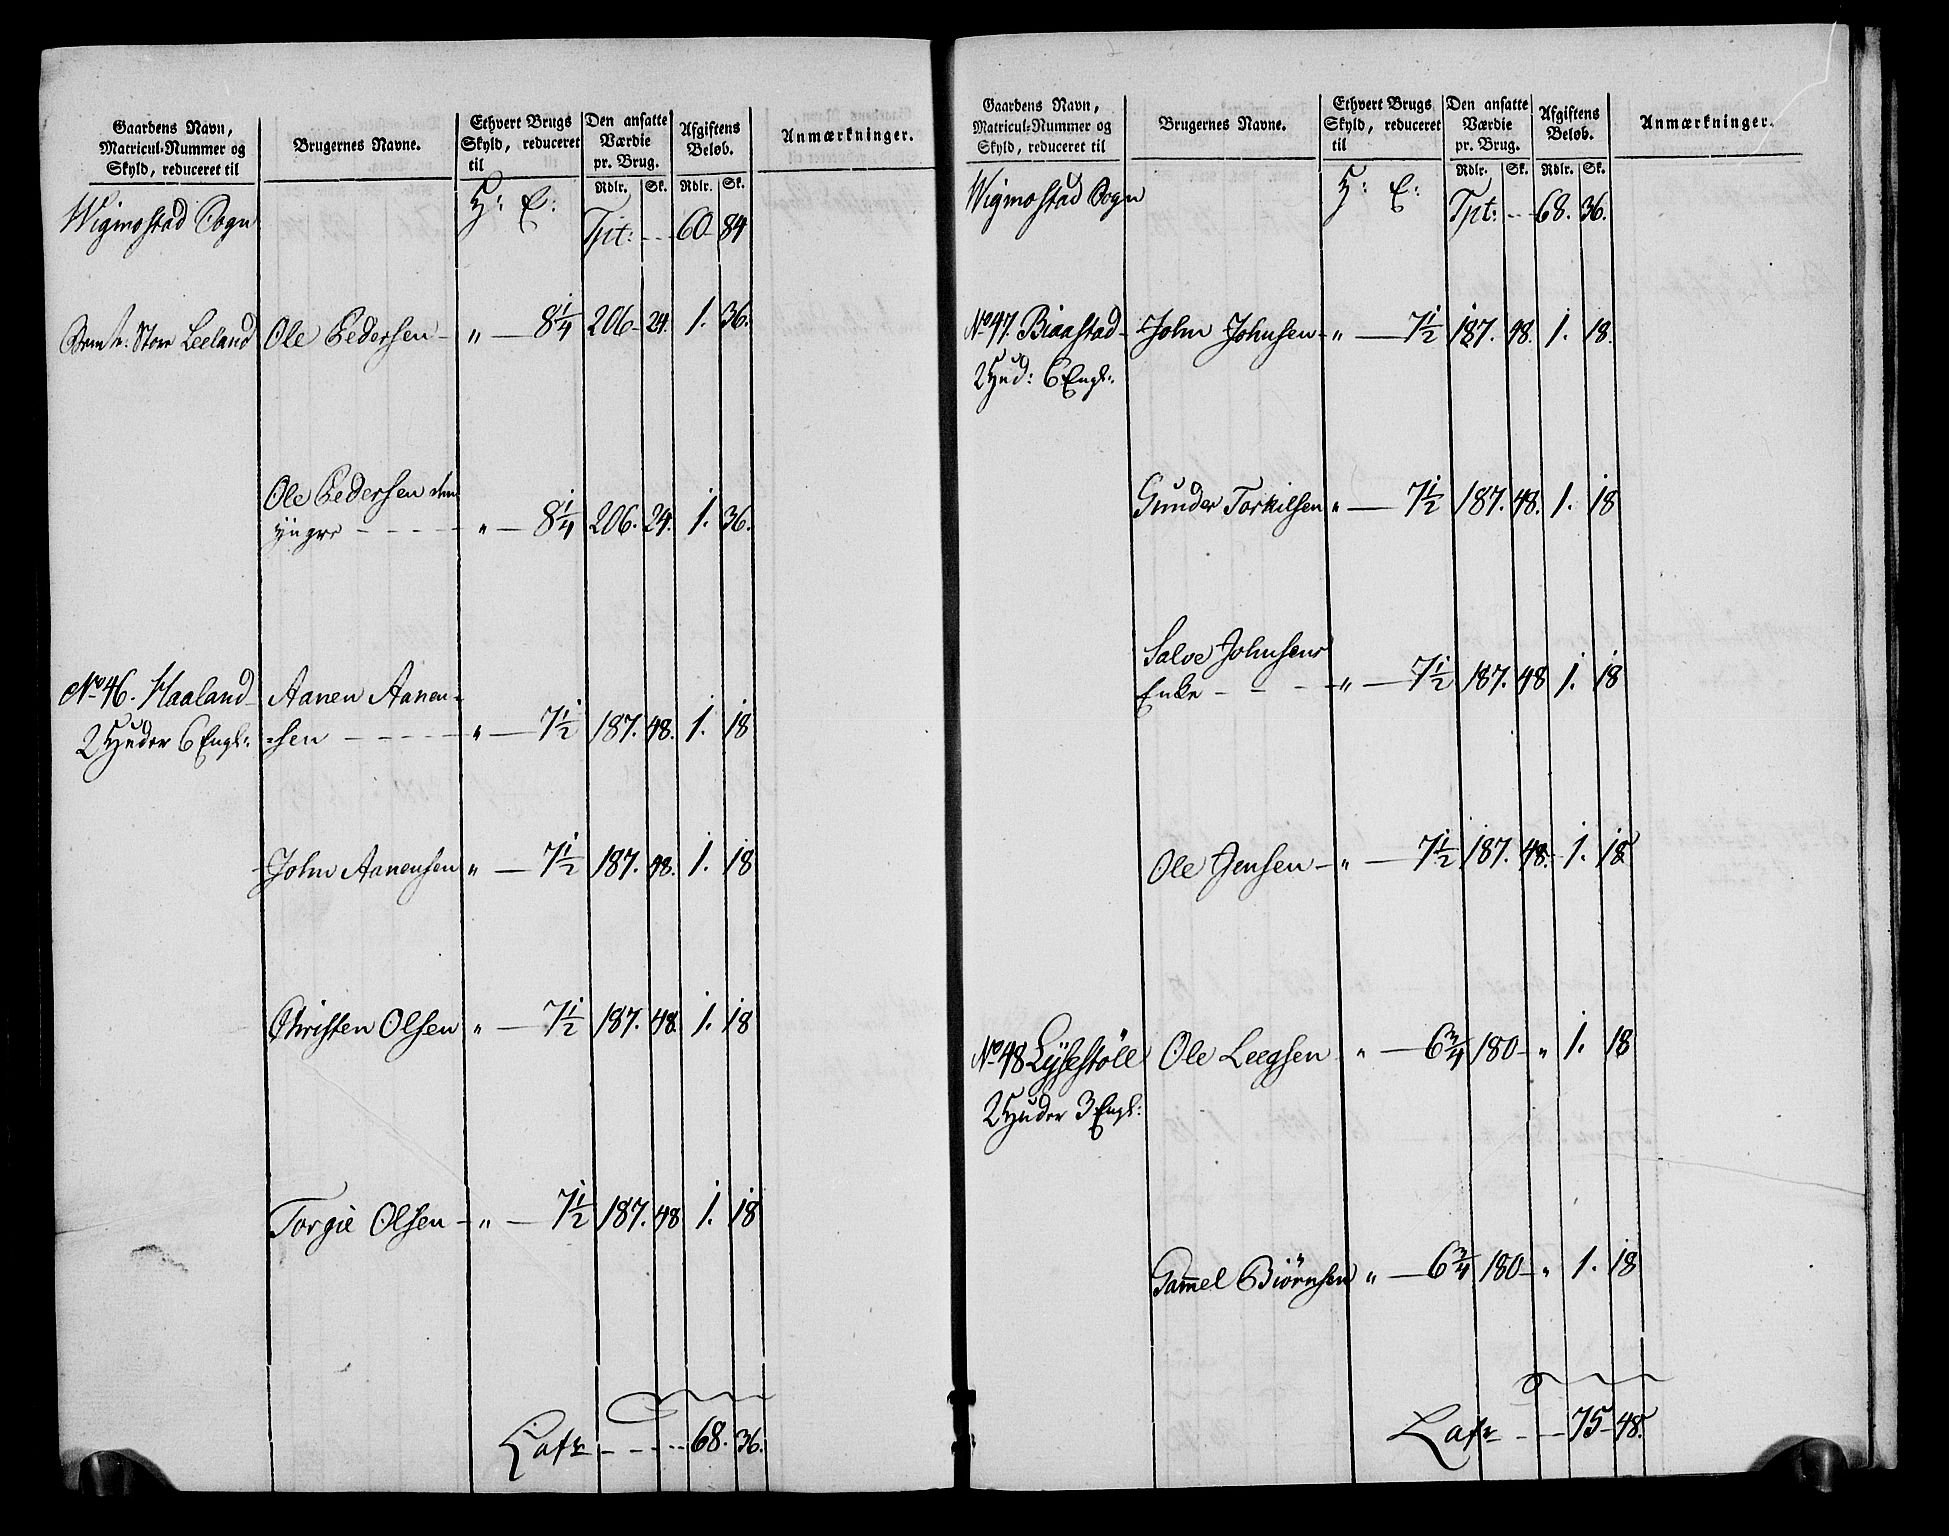 Gaardens Navn,
Matricul-Nummer og
Skyld, reduceret til
Brugernes Navne.
Ethvert Brugs
Skyld, reduceret
til
Den ansatte
Værdie
pr. Brug.
Afgiftens
Beløb.
Anmærkninger.
Rdlr. Sk. Rdlr. Sk.
Wigmostad Sogn H: E: Tpt: - - 60 84
Store Leeland Ole Pedersen - " - 8 1/4 206 - 24. 1. 36.
Ole Pedersen den
yngre - - - - " - 8 1/4 206. 24. 1. 36.
No 46. Haaland - Aanen Aanen-
2 Huder 6 Engl: -sen - - - - " - 7 1/2 187. 48. 1. 18
John Aanensen " - 7 1/2 187. 48. 1. 18
Christen Olsen " - 7 1/2 187. 48. 1. 18
Torgie Olsen - " - 7 1/2 187. 48 1. 18
Latr - - - - 68. 36.
Gaardens Navn,
Matricul-Nummer og
Skyld, reduceret til
Brugernes Navne.
Ethvert Brugs
Skyld, reduceret
til
Den ansatte
Værdie
pr. Brug.
Afgiftens
Beløb.
Anmærkninger.
Rdlr. Sk. Rdlr. Sk.
Wigmostad Sogn H: E: Tpt: - - 68. 36.
No 47 Biaastad - John Johnsen - " - 7 1/2 187. 48. 1. 18.
2 Hud: 6 Engl:
Gunder Torkilsen " - 7 1/2 187. 48. 1. 18
Salve Johnsens
Enke - - - - " - 7 1/2 187. 48 1. 18
Ole Jensen - " - 7 1/2 187. 48. 1. 18
No 48 Lysestöll Ole Leegsen " - 6 3/4 180 - " 1. 18
2 Huder 3 Engl:
Gam̅el Biörnsen " - 6 3/4 180 - " 1. 18
Latr - - 75 - 48.